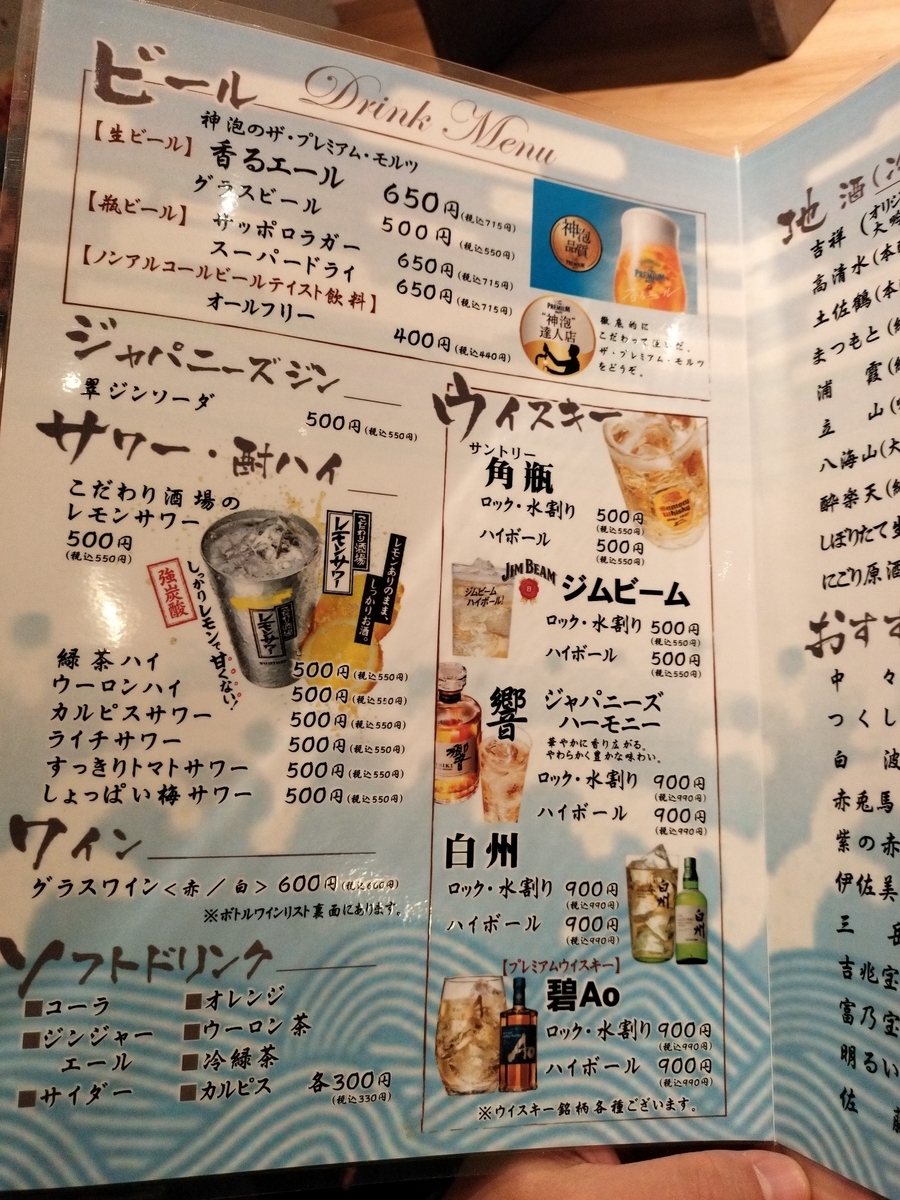 ビール
Drink Menu
神泡のザ・プレミアム・モルツ
【生ビール】 香るエール 650円(税込715円)
グラスビール 500円(税込550円)
【瓶ビール】 サッポロラガー 650円(税込715円)
スーパードライ 650円(税込715円)
【ノンアルコールビールテイスト飲料】
オールフリー 400円(税込440円)
神泡
品質
PREMIUM
"神泡"
達人店
徹底的に
こだわって注いだ、
ザ・プレミアム・モルツ
をどうぞ。
ジャパニーズジン
翠ジンソーダ 500円(税込550円)
サワー・酎ハイ
こだわり酒場の
レモンサワー
500円
(税込550円)
強炭酸
しっかりレモンで甘くない!
こだわり酒場
レモンサワー
レモンありのまま、
しっかりお酒。
緑茶ハイ 500円(税込550円)
ウーロンハイ 500円(税込550円)
カルピスサワー 500円(税込550円)
ライチサワー 500円(税込550円)
すっきりトマトサワー 500円(税込550円)
しょっぱい梅サワー 500円(税込550円)
ワイン
グラスワイン<赤/白> 600円(税込660円)
※ボトルワインリスト裏面にあります。
ソフトドリンク
■コーラ ■オレンジ
■ジンジャーエール ■ウーロン茶
■冷緑茶
■サイダー ■カルピス 各300円
(税込330円)
ウイスキー
サントリー
角瓶
ロック・水割り 500円
(税込550円)
ハイボール 500円
(税込550円)
JIM BEAM
ジムビーム
ハイボール!
ジムビーム
ロック・水割り 500円
(税込550円)
ハイボール 500円
(税込550円)
響 ジャパニーズ
ハーモニー
華やかに香り広がる。
やわらかく豊かな味わい。
ロック・水割り 900円
(税込990円)
ハイボール 900円
(税込990円)
白州
ロック・水割り 900円
(税込990円)
ハイボール 900円
(税込990円)
白州
白州
【プレミアムウイスキー】
碧Ao
Ao
ロック・水割り 900円
(税込990円)
ハイボール 900円
(税込990円)
※ウイスキー銘柄各種ございます。
地酒(
吉祥(オリジ
大吟
高清水(本
土佐鶴(本
まつもと(
浦霞(
立山(
八海山(大
酔楽天(
しぼりたて生
にごり原酒
おすす
中々
つくし
白波
赤兎馬
紫の赤
伊佐美
三岳
吉兆宝
富乃宝
明るい
佐藤